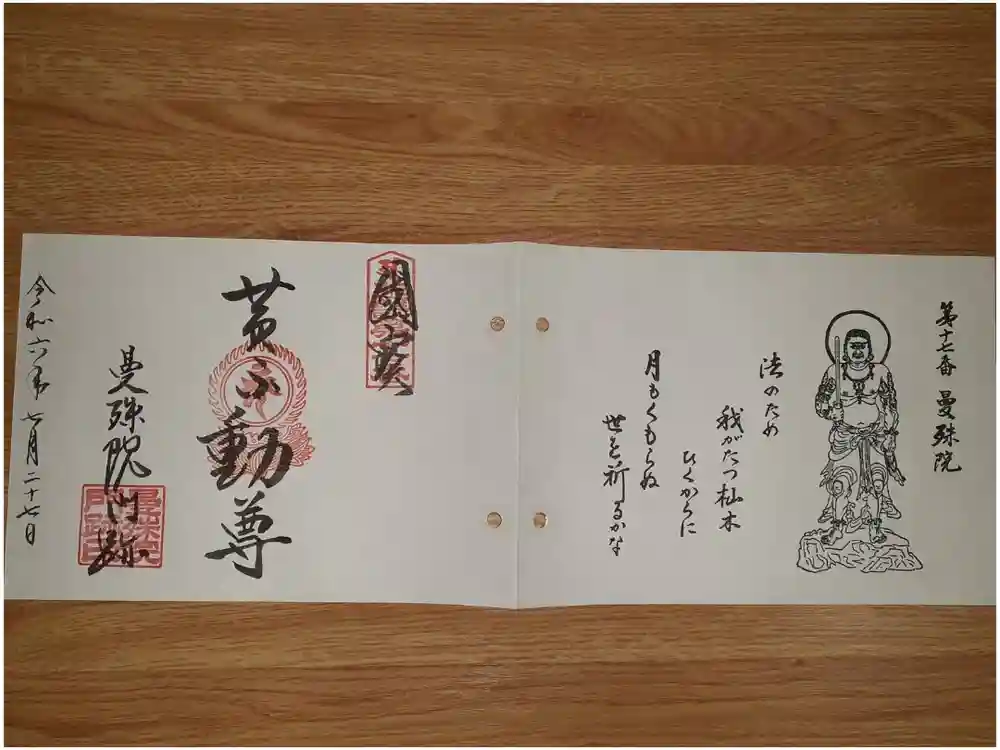 第十七番 曼殊院
法のため
我がたつ杣木
ひくからに
月もくもらぬ
世を祈るかな
國寳
黄不動尊
曼殊院門跡
令和六年七月二十七日